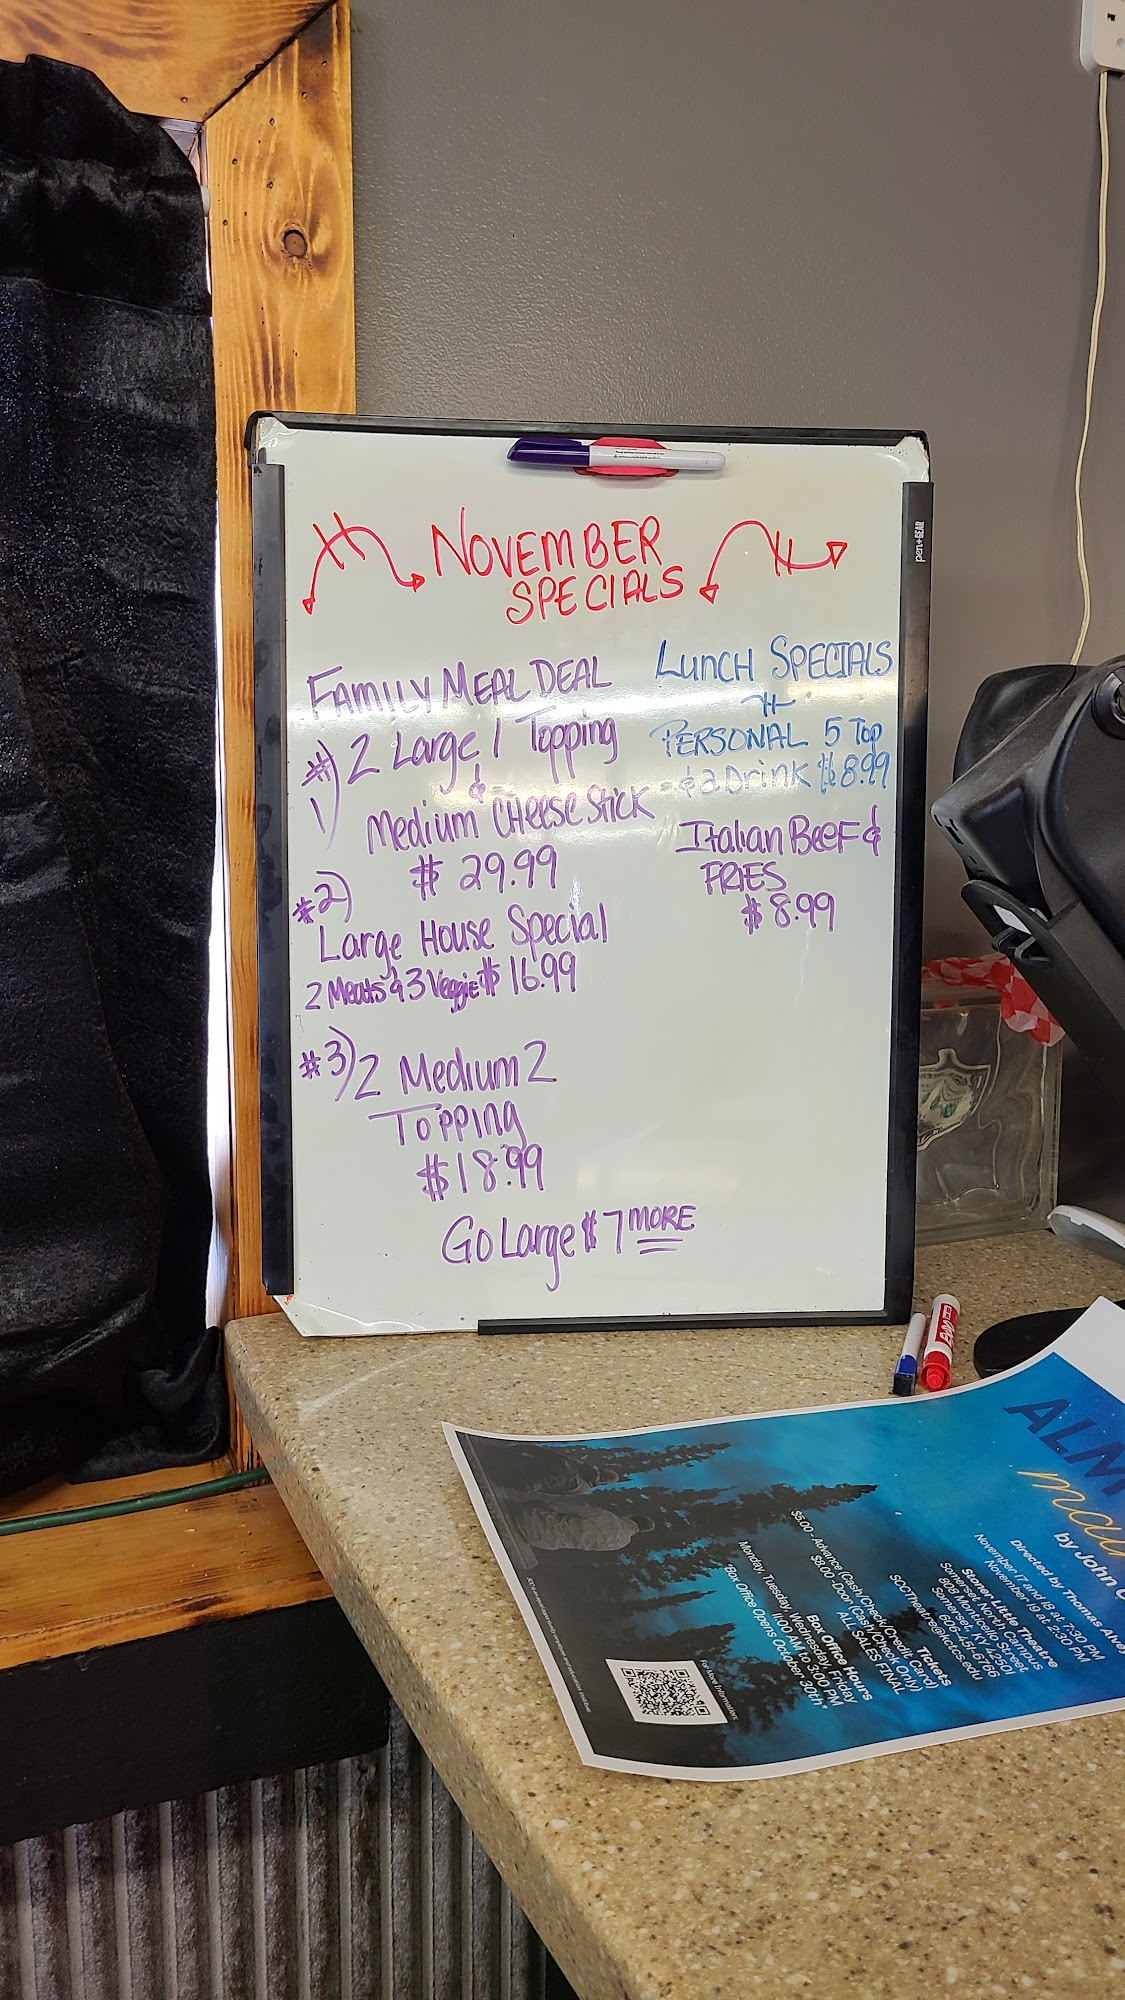 NOVEMBER
SPECIALS
FAMILY MEAL DEAL
#1) 2 Large 1 Topping
&
Medium CHEESE STICK
$ 29.99
#2)
Large House Special
2 Meats & 3 Veggie $ 16.99
#3) 2 Medium 2
TOPPING
$18.99
Go Large $ 7 MORE
LUNCH SPECIALS
PERSONAL 5 Top
& a Drink $8.99
Italian BEEF &
FRIES
$ 8.99
pen+GEAR
ALM
by John
Directed by Thomas
November 17 and 18 at 7:30 PM
November 19 at 2:30 PM
Stoner Little Theatre
Somerset North Campus
808 Monticello Street
Somerset, KY 42501
606-451-6766
SCCTheatre@kctcs.edu
Tickets
$5.00 - Advance (Cash/Check/Credit Card)
$8.00 - Door (Cash/Check Only)
ALL SALES FINAL
Box Office Hours
Monday, Tuesday, Wednesday, Friday
11:00 AM to 3:00 PM
*Box Office Opens October 30th*
For More Information: